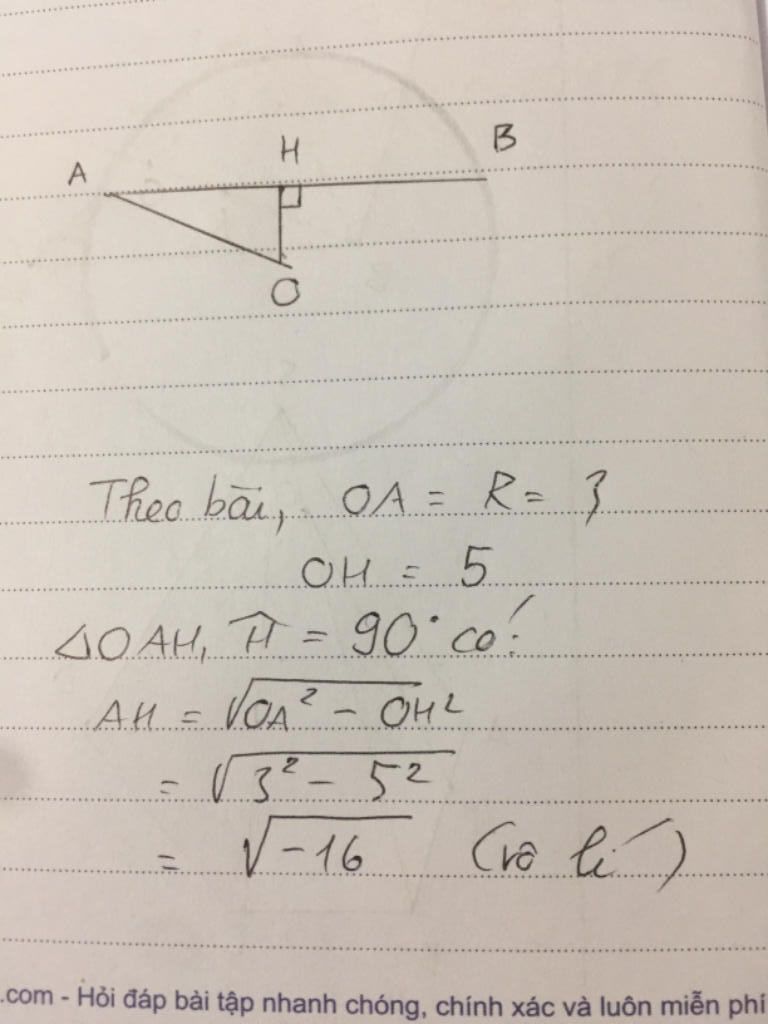 A H B
O
Theo bài, OA = R = 3
OH = 5
△OAH, Ĥ = 90° có:
AH = √(OA² - OH²)
= √(3² - 5²)
= √-16 (vô lí)
.com - Hỏi đáp bài tập nhanh chóng, chính xác và luôn miễn phí